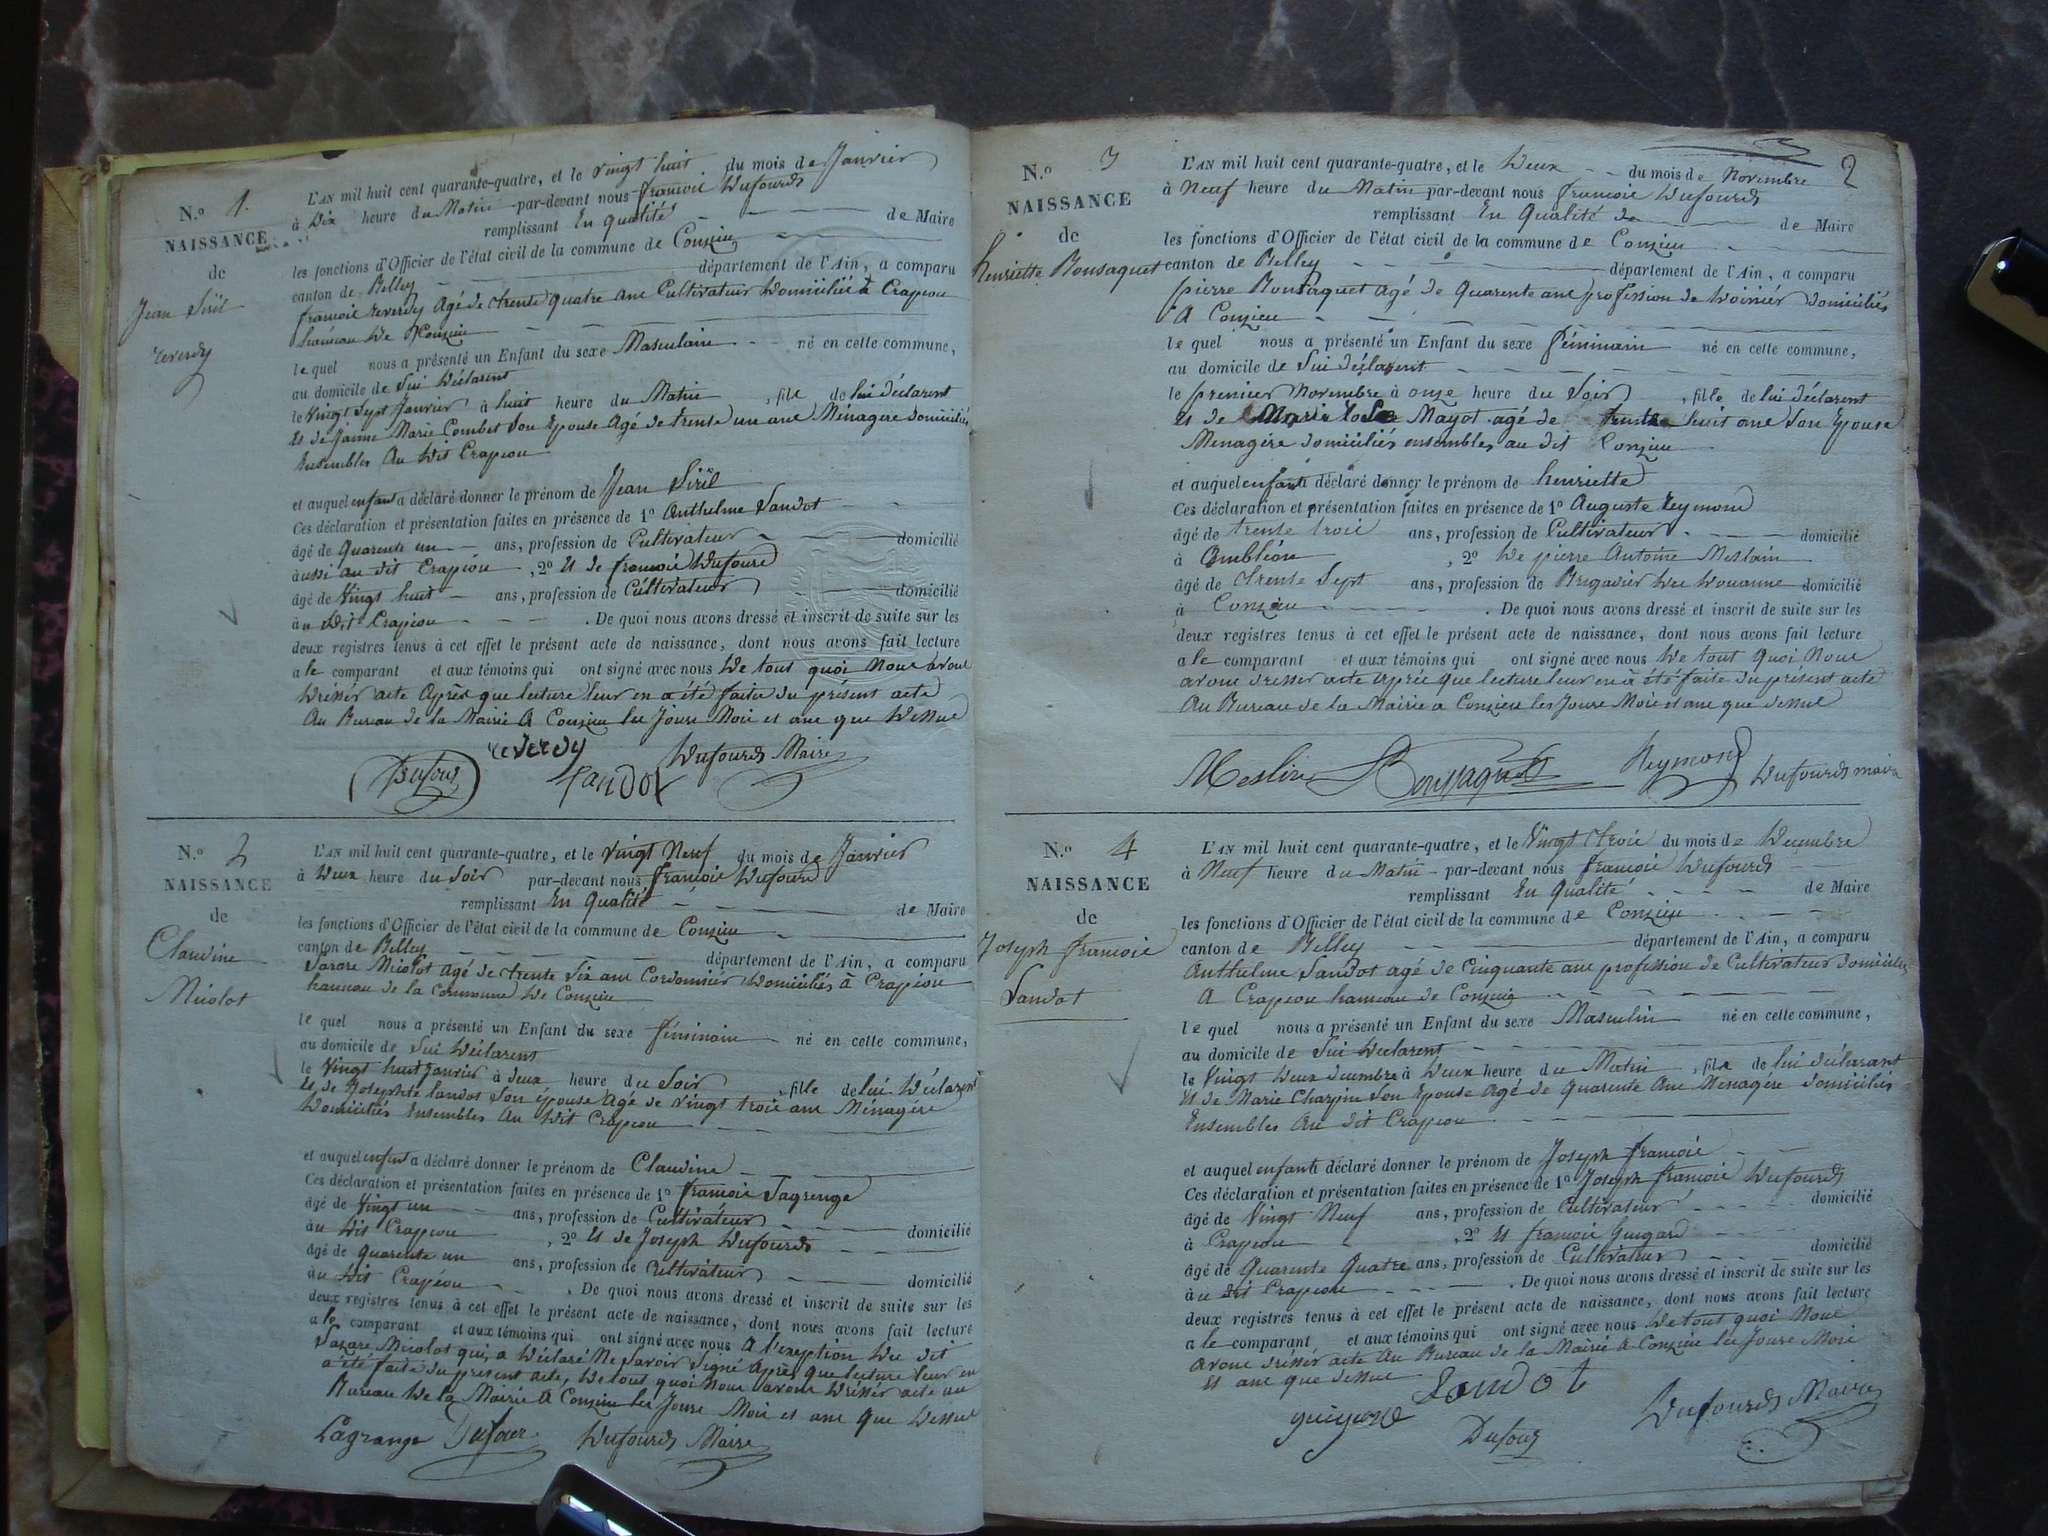 N.o 1.
NAISSANCE
de
Jean Siril
reverdy
L'AN mil huit cent quarante-quatre, et le vingt huit du mois de Janvier
à Dix heure du Matin par-devant nous francois Dufourd
remplissant En qualité de Maire
les fonctions d'Officier de l'état civil de la commune de Conzieu
canton de Belley département de l'Ain, a comparu
francois reverdy Agé de trente quatre ans Cultivateur Domicilié à Crapeou
hameau De Conzieu
le quel nous a présenté un Enfant du sexe Masculain né en cette commune,
au domicile de Lui Déclarent
le Vingt Sept Janvier à huit heure du Matin, fils de lui déclarent
Et de Janne Marie Combet Son Epouse Agé de trente un ans Ménagere domiciliés
Ensembles Au Dit Crapeou
et auquel enfant a déclaré donner le prénom de Jean Siril
Ces déclaration et présentation faites en présence de 1o Anthelme Landot
âgé de Quarente un ans, profession de Cultivateur domicilié
à ussi au dit Crapéou, 2o Et de francois Dufourd
âgé de Vingt huit ans, profession de Cultivateur domicilié
à u Dit Crapeou. De quoi nous avons dressé et inscrit de suite sur les
deux registres tenus à cet effet le présent acte de naissance, dont nous avons fait lecture
a le comparant et aux témoins qui ont signé avec nous De tout quoi Nous avons
Dréssér acte Après que lecture leur en a été faite du présent acte
Au Bureau de la Mairie A Conzieu les Jours Mois et ans que Dessus
reverdy Dufourd Maire
Dufour Landot
N.o 2
NAISSANCE
de
Claudine
Nicolot
L'AN mil huit cent quarante-quatre, et le Vingt Neuf du mois de Janvier
à Deux heure du Soir par-devant nous francois Dufourd
remplissant En Qualité de Maire
les fonctions d'Officier de l'état civil de la commune de Conzieu
canton de Belley département de l'Ain, a comparu
Lazare Nicolot agé de trente Six ans Cordonnier Domiciliés à Crapéou
hameau de la Commune De Conzieu
le quel nous a présenté un Enfant du sexe féminain né en cette commune,
au domicile de Lui Déclarent
le Vingt huit Janvier à deux heure du Soir, fille de lui Déclarent
Et de Josephte landos Son épouse Agé de vingt trois ans Ménagére
Domiciliés Ensembles Au Dit Crapeou
et auquel enfent a déclaré donner le prénom de Claudine
Ces déclaration et présentation faites en présence de 1o francois Lagrenge
âgé de Vingt un ans, profession de Cultivateur domicilié
à u Dit Crapeou, 2o Et de Joseph Dufourd
âgé de Quarente un ans, profession de Cultivateur domicilié
à u Dit Crapéou. De quoi nous avons dressé et inscrit de suite sur les
deux registres tenus à cet effet le présent acte de naissance, dont nous avons fait lecture
a le comparant et aux témoins qui ont signé avec nous A l'exeption Du dit
Lazare Nicolot qui, a Déclaré Ne Savoir Signé Après que lecture leur en
a été faite du présent acte, De tout quoi Nous avons Dréssér acte au
Bureau De la Mairie A Conzieu les Jours Mois et ans que Dessus
Lagrange Dufour Dufourd Maire
2
N.o 3
NAISSANCE
de
henriette Bonsaquet
L'AN mil huit cent quarante-quatre, et le Deux du mois de Novembre
à Neuf heure du Matin par-devant nous francois Dufourd
remplissant En Qualité de de Maire
les fonctions d'Officier de l'état civil de la commune de Conzieu
canton de Belley département de l'Ain, a comparu
pierre Bonsaquet agé de Quarente ans profession de Doinier domiciliés
A Conzieu
le quel nous a présenté un Enfant du sexe féminain né en cette commune,
au domicile de Lui déclarent
le premier Novembre à onze heure du Soir, fille de lui déclarent
Et de Marie Mayot agé de trente huit ans Son Epouse
Menagère domiciliés ensembles au dit Conzieu
et auquel enfant déclaré donner le prénom de henriette
Ces déclaration et présentation faites en présence de 1o Auguste reymond
âgé de trente trois ans, profession de Cultivateur domicilié
à Amblión, 2o De pierre Antoine Meslain
âgé de trente Sept ans, profession de Brigadier Des Douanne domicilié
à Conzieu. De quoi nous avons dressé et inscrit de suite sur les
deux registres tenus à cet effet le présent acte de naissance, dont nous avons fait lecture
a le comparant et aux témoins qui ont signé avec nous De tout Quoi Nous
avons dresser acte après que lecture leur en a été faite du présent acte
Au Bureau de la Mairie a Conzieu les Jours Mois et ans que dessus
Meslin Bonsaquet Reymond Dufourd maire
N.o 4
NAISSANCE
de
Joseph francois
Landot
L'AN mil huit cent quarante-quatre, et le Vingt trois du mois de Décembre
à Neuf heure du Matin par-devant nous francois Dufourd
remplissant En Qualité de Maire
les fonctions d'Officier de l'état civil de la commune de Conzieu
canton de Belley département de l'Ain, a comparu
Anthelme Landot agé de Cinquante ans profession de Cultivateur domiciliés
A Crapeou hameau de Conzieu
le quel nous a présenté un Enfant du sexe Masculin né en cette commune,
au domicile de Lui Déclarent
le Vingt Deux décembre à Deux heure du Matin, fils de lui déclarant
Et de Marie Charpin Son Epouse Agé de Quarente Ans Menagère domiciliés
Ensembles Au dit Crapeou
et auquel enfant déclaré donner le prénom de Joseph francois
Ces déclaration et présentation faites en présence de 1o Joseph francois Dufourd
âgé de Vingt Neuf ans, profession de Cultivateur domicilié
à Crapeou, 2o Et francois Guigard
âgé de Quarente Quatre ans, profession de Cultivateur domicilié
à u dit Crapeou. De quoi nous avons dressé et inscrit de suite sur les
deux registres tenus à cet effet le présent acte de naissance, dont nous avons fait lecture
a le comparant et aux témoins qui ont signé avec nous De tout quoi Nous
avons dréssér acte Au Bureau de la Mairie A Conzieu les Jours Mois
Et ans que dessus
Landot
Dufour Dufourd Maire